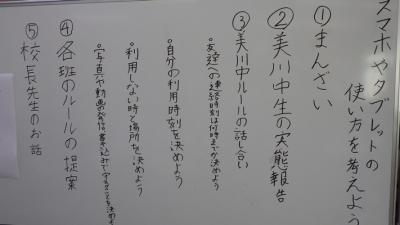 スマホやタブレットの
使い方を考えよう
①まんざい
②美川中生の実態報告
③美川中ルールの話し合い
・友達への連絡時刻は何時までか決めよう
・自分の利用時刻を決めよう
・利用しない時と場所を決めよう
・写真や動画発信、書き込みで守ることを決めよう
④各班のルールの提案
⑤校長先生のお話